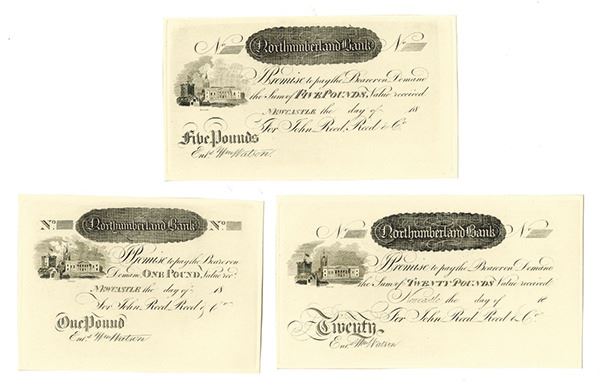 No
Northumberland Bank
No
I Promise to pay the Bearer on Demand
the Sum of FIVE POUNDS, Value received
NEWCASTLE the day of 18
For John Reed, Reed & Co.
Five Pounds
Entd. Wm Watson.
No.
Northumberland Bank
No.
I Promise to pay the Bearer on
Demand ONE POUND, Value recd.
NEWCASTLE the day of 18
For John Reed, Reed & Co.
One Pound
Entd. Wm Watson
No
Northumberland Bank
No
I Promise to pay the Bearer on Demand
the Sum of TWENTY POUNDS Value received
Newcastle the day of 18
For John Reed, Reed & Co.
Twenty
Entd. Wm Watson